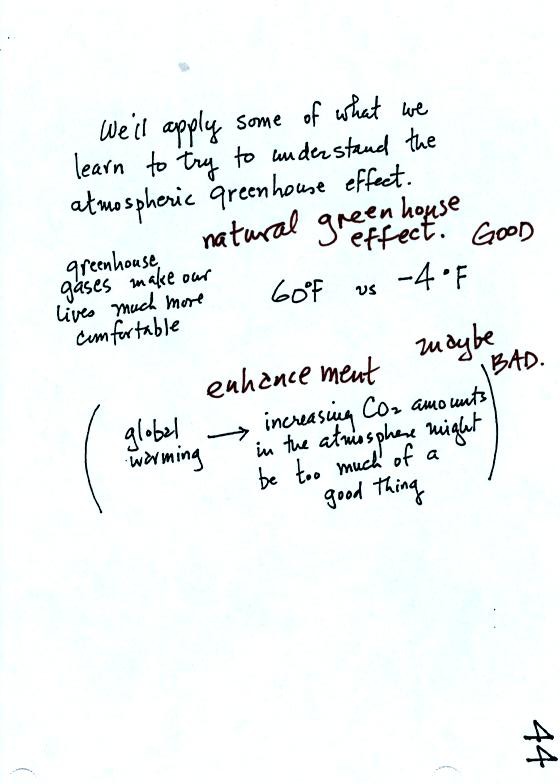 We'll apply some of what we
learn to try to understand the
atmospheric greenhouse effect.
natural greenhouse
effect. GOOD
greenhouse
gases make our
lives much more
comfortable
60°F vs -4°F
maybe
BAD.
enhancement
global
warming
→ increasing CO2 amounts
in the atmosphere might
be too much of a
good thing
44